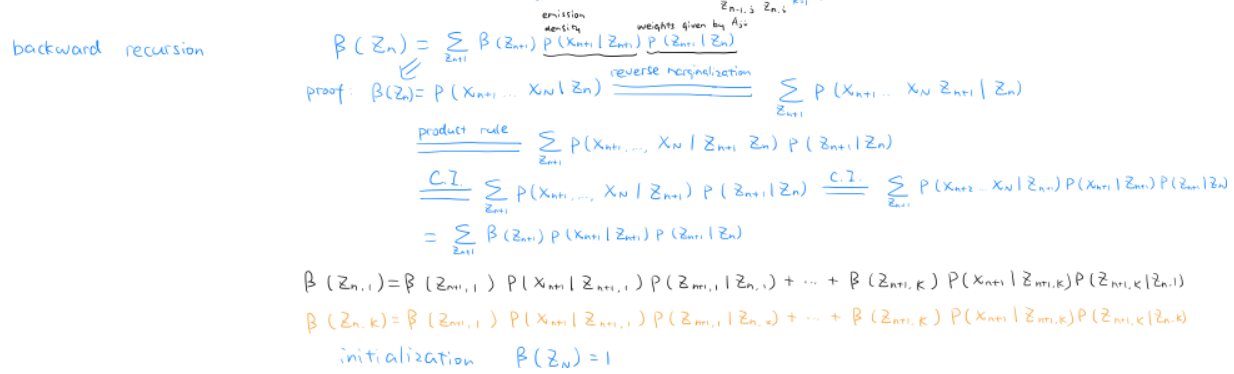 z_{n-1,j} z_{n,i}
emission
density weights given by A_{ji}
backward recursion β(z_n) = Σ_{z_{n+1}} β(z_{n+1}) p(x_{n+1}|z_{n+1}) p(z_{n+1}|z_n)
proof: β(z_n) = p(x_{n+1} ... x_N|z_n) =(reverse marginalization) Σ_{z_{n+1}} p(x_{n+1} ... x_N z_{n+1}|z_n)
=(product rule) Σ_{z_{n+1}} p(x_{n+1}, ..., x_N|z_{n+1} z_n) p(z_{n+1}|z_n)
=(C.I.) Σ_{z_{n+1}} p(x_{n+1}, ..., x_N|z_{n+1}) p(z_{n+1}|z_n) =(C.I.) Σ_{z_{n+1}} p(x_{n+2} ... x_N|z_{n+1}) p(x_{n+1}|z_{n+1}) p(z_{n+1}|z_n)
= Σ_{z_{n+1}} β(z_{n+1}) p(x_{n+1}|z_{n+1}) p(z_{n+1}|z_n)
β(z_{n,1}) = β(z_{n+1,1}) p(x_{n+1}|z_{n+1,1}) p(z_{n+1,1}|z_{n,1}) + ... + β(z_{n+1,K}) p(x_{n+1}|z_{n+1,K}) p(z_{n+1,K}|z_{n,1})
β(z_{n,K}) = β(z_{n+1,1}) p(x_{n+1}|z_{n+1,1}) p(z_{n+1,1}|z_{n,K}) + ... + β(z_{n+1,K}) p(x_{n+1}|z_{n+1,K}) p(z_{n+1,K}|z_{n,K})
initialization β(z_N) = 1